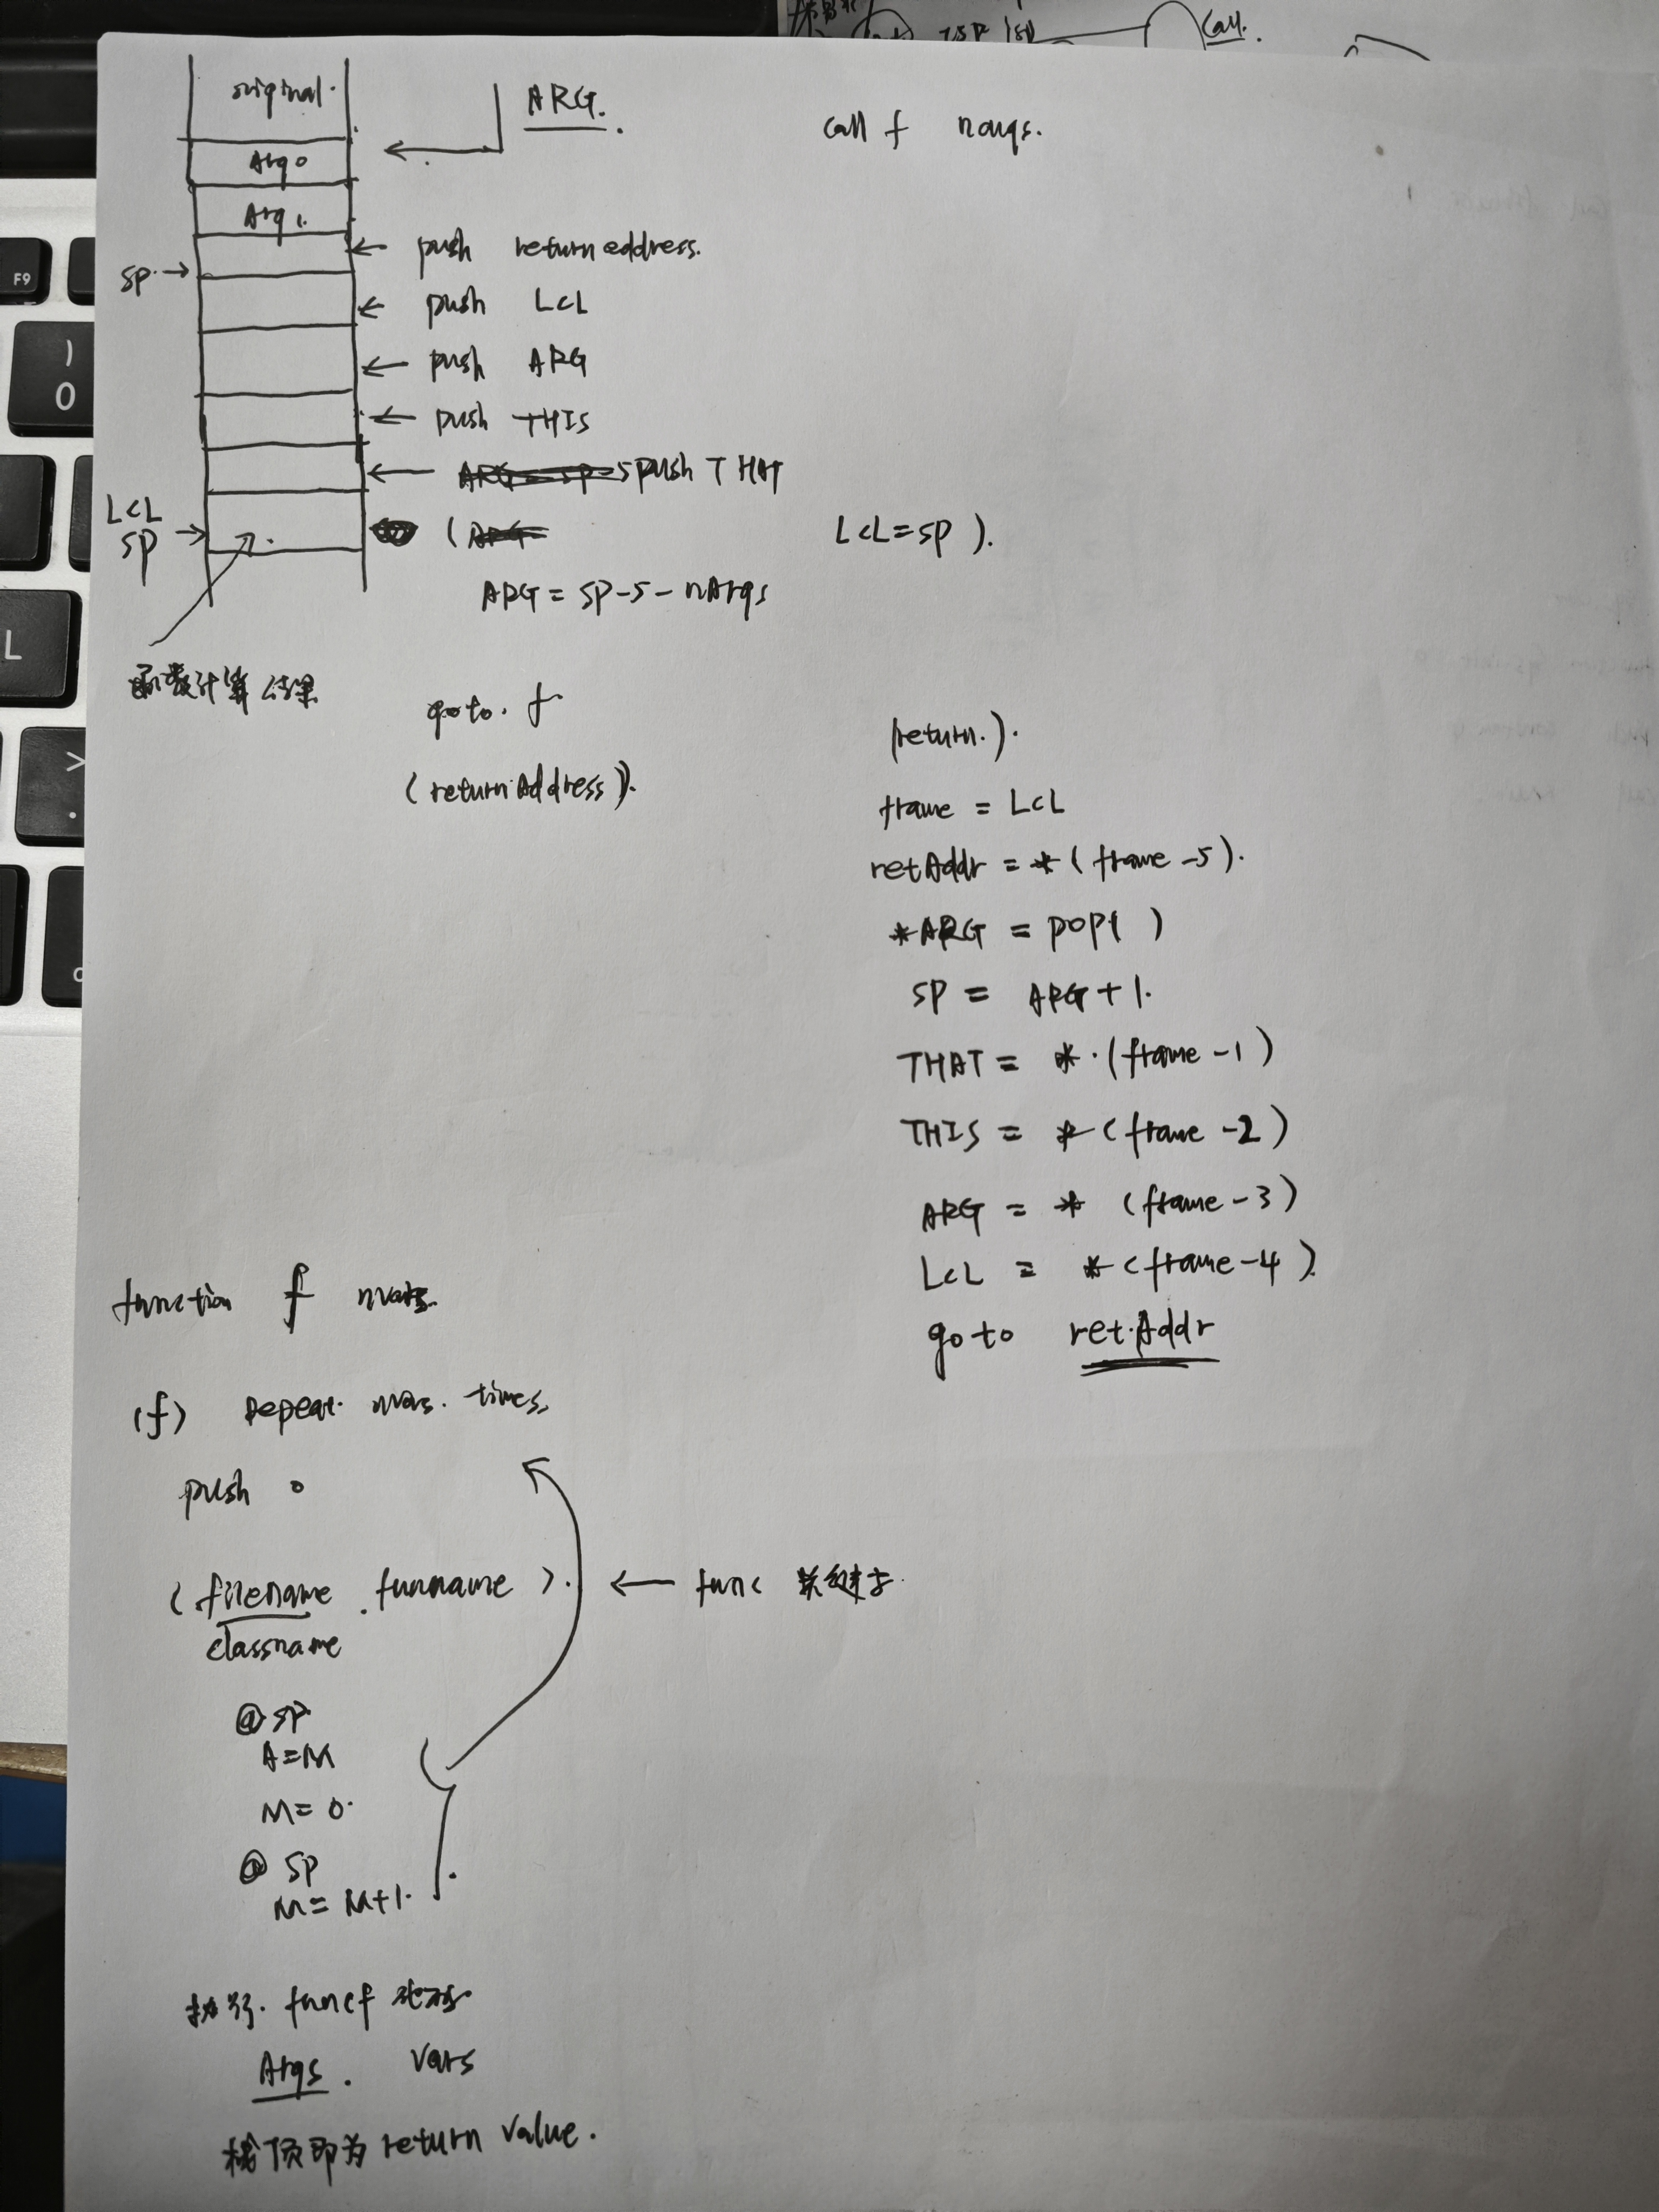 Call.
original.
ARG.
call f nargs.
Arg 0
Arg 1.
push return address.
SP →
push LCL
push ARG
push THIS
push THAT
LCL
SP →
(
LCL = SP ).
ARG = SP-5-nArgs
函数计算结果
goto. f
(return Address).
(return.).
frame = LCL
retAddr = *(frame-5).
*ARG = pop( )
SP = ARG+1.
THAT = *.(frame-1)
THIS = *(frame-2)
ARG = * (frame-3)
LCL = *(frame-4)
go to ret.Addr
function f nvars.
(f) repeat. nvars. times,
push 0
(filename . funname ). ← func 关键字.
classname
@ SP
A=M
M=0.
@ SP
M=M+1.
执行. func f
Args . Vars
栈顶即为 return value.
F9
)
0
L
>
.